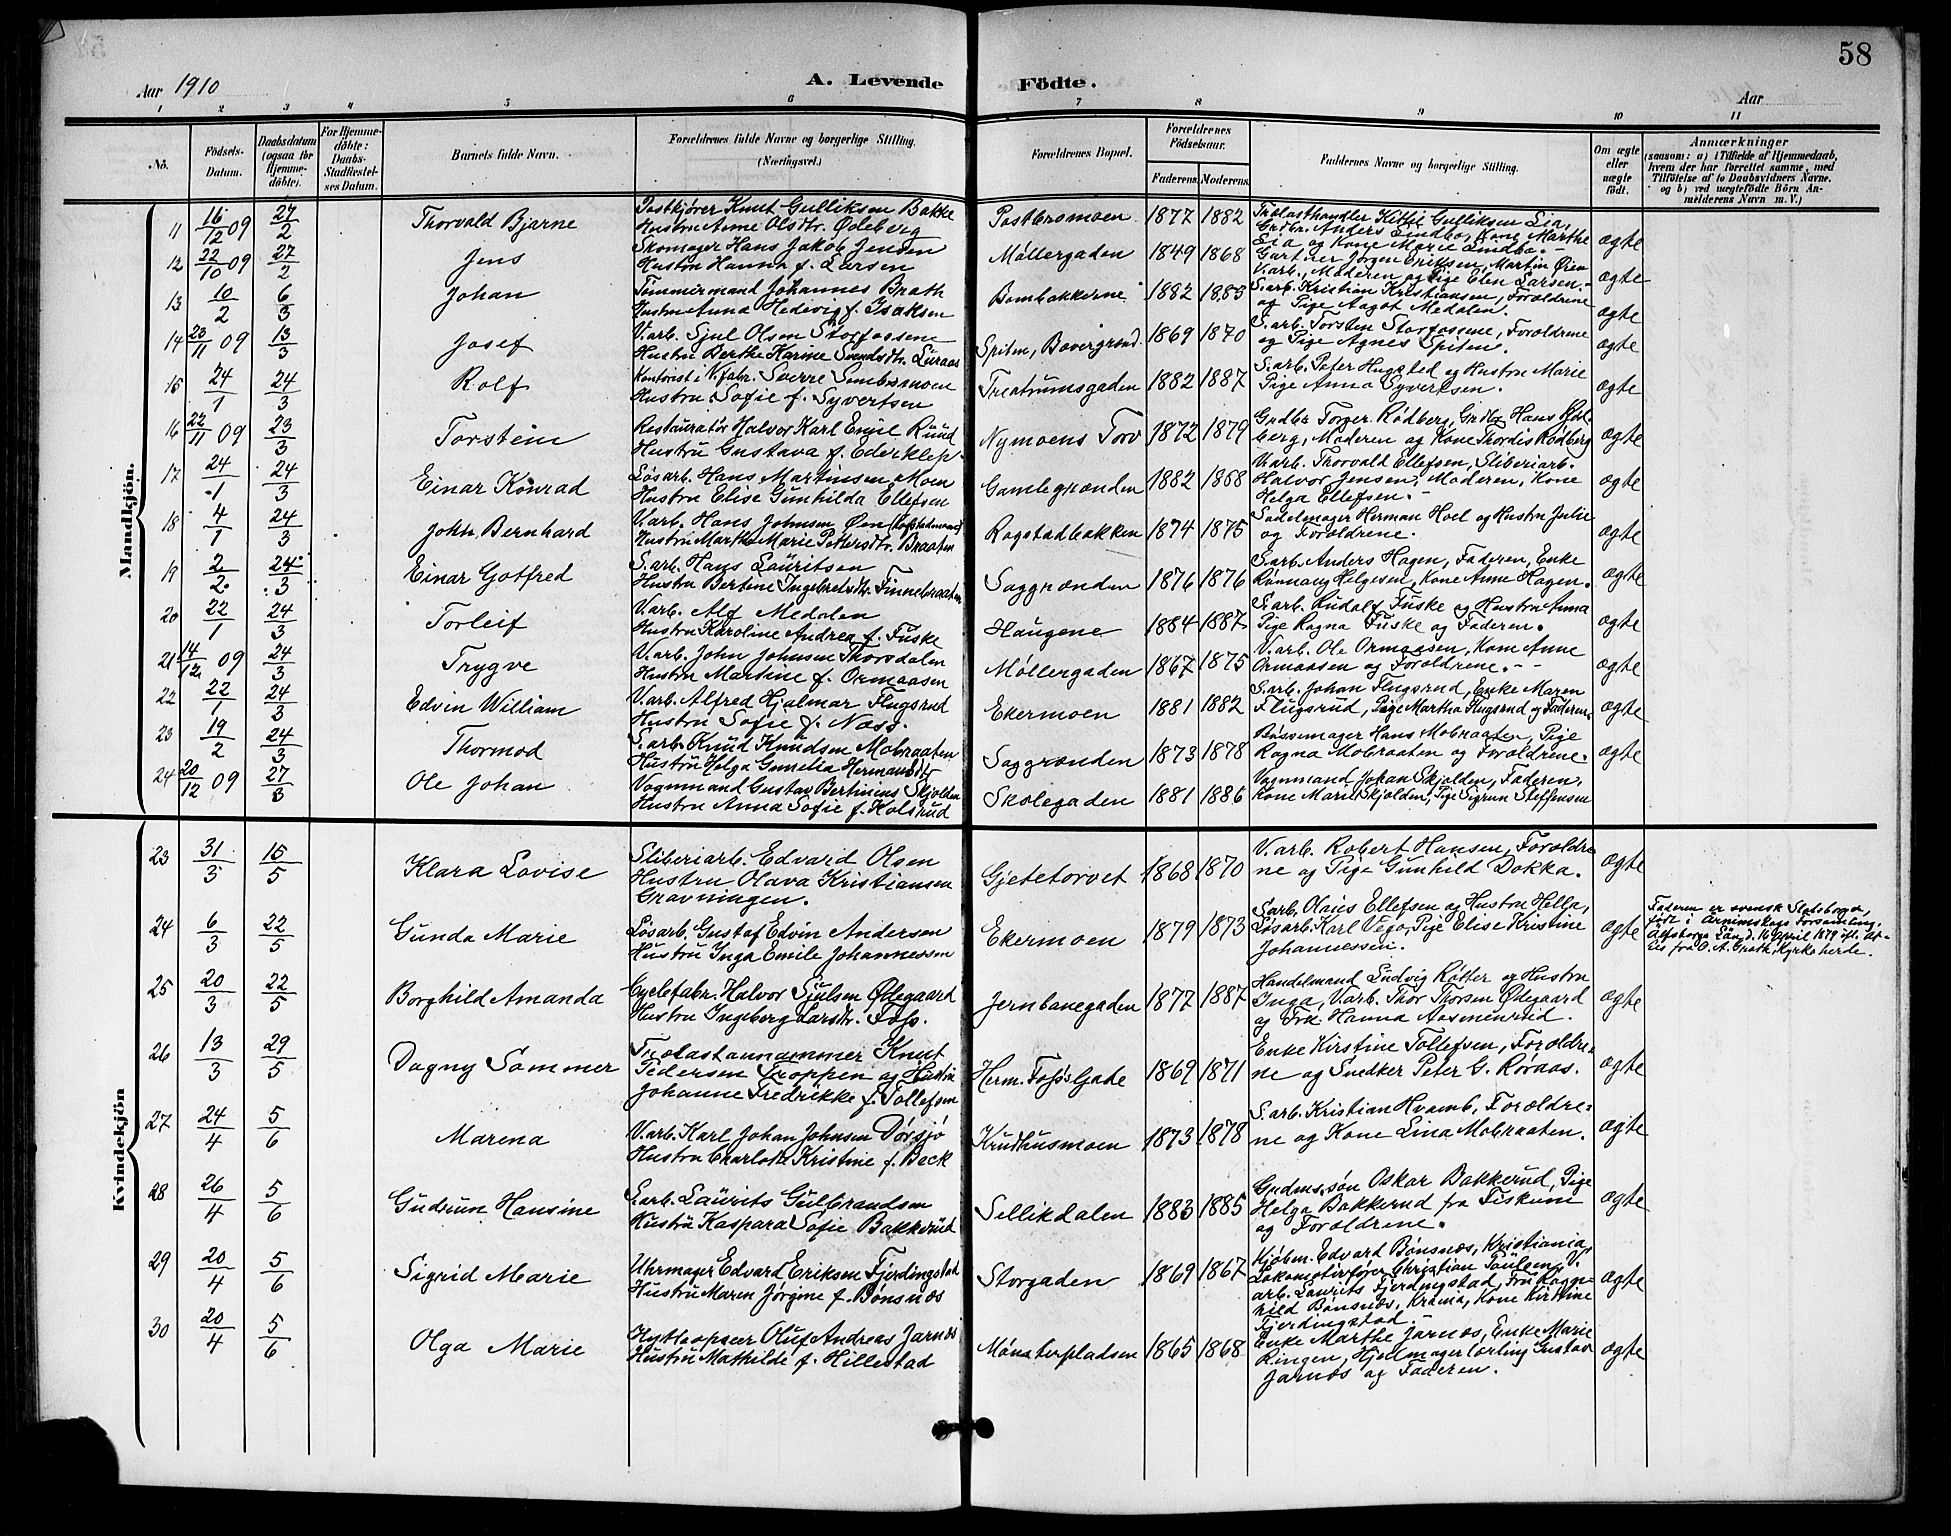 58
Aar 1910
A. Levende Födte.
Aar
1 2 3 4 5 6 7 8 9 10 11
No. Födsels-Datum. Daabsdatum (ogsaa for Hjemmedöbte). For Hjemmedöbte: Daabs-Stadfæstelses Datum. Barnets fulde Navn. Forældrenes fulde Navne og borgerlige Stilling. (Næringsvei.) Forældrenes Bopæl. Forældrenes Födselsaar. Faderens. Moderens. Faddernes Navne og borgerlige Stilling. Om ægte eller uægte födt. Anmærkninger (saasom: a) i Tilfælde af Hjemmedaab, hvem der har forrettet samme, med Tilföielse af to Daabsvidners Navne. og b) ved uægtefödte Börn Anmelderens Navn m. V.)
Mandkjön.
11 16/12 09 27/2 Thorvald Bjarne Postkjører Knut Gulliksen Bakke Hustru Anne Olsdtr. Ødeberg Postbromoen 1877 1882 Trælasthandler Kittil Gulliksen Lia, Grdbr. Anders Lindbo, Kone Marthe Lia og Kone Marie Lindbo. ægte
12 22/10 09 27/2 Jens Skomager Hans Jakob Jensen Hustru Hanna f. Larsen Møllergaden 1849 1868 Gartner Jørgen Eriksen, Martin Øien V.arb., Moderen og Pige Elen Larsen. ægte
13 10/2 6/3 Johan Tømmermand Johannes Brath Hustru Anna Hedevig f. Isaksen Bombakkerne 1882 1883 S.arb. Kristian Kristiansen, Forældrene og Pige Aagot Medalen. ægte
14 23/11 09 13/3 Josef V.arb. Sjul Olsen Storfossene Hustru Berthe Karine Svendsdtr. Luraas Spiten, Bævergrænd. 1869 1870 S.arb. Torsten Storfossene, Forældrene og Pige Agnes Spiten. ægte
15 24/1 24/3 Rolf Kontorist i V.fabr. Sverre Sembsmoen Hustru Sofie f. Syvertsen Treatrumsgaden 1882 1887 S.arb. Peter Hugsted og Hustru Marie Pige Anna Syvertsen. ægte
16 22/11 09 23/3 Torstein Restauratør Halvor Karl Emil Ruud Hustru Gustava f. Ederklep Nymoens Torv 1872 1879 Grdbr. Torger Rødberg, Grdbr. Hans Ødeberg, Moderen og Kone Thordis Rødberg ægte
17 24/1 24/3 Einar Konrad Løsarb. Hans Martinsen Moen Hustru Elise Gunhilda Ellefsen Gamlegrænden 1882 1888 V.arb. Thorvald Ellefsen, Sliberiarb. Halvor Jensen, Moderen, Kone Helga Ellefsen. ægte
18 4/1 24/3 John Bernhard V.arb. Hans Johnsen Øen Hustru Marthe Marie Pettersdtr. Braaten Rogstadbakken 1874 1875 Sadelmager Herman Hoel og Hustru Julie og Forældrene. ægte
19 2/2 24/3 Einar Gotfred S.arb. Hans Lauritsen Hustru Bertine Ingebretsdtr. Finnebraaten Saggrænden 1876 1876 S.arb. Anders Hagen, Faderen, Enke Rønnaug Helgesen, Kone Anne Hagen. ægte
20 22/1 24/3 Torleif V.arb. Alf Medalen Hustru Karoline Andrea f. Fuske Haugene 1884 1887 S.arb. Rudolf Fuske og Hustru Anna Pige Ragna Fuske og Faderen. ægte
21 14/12 09 24/3 Trygve V.arb. John Johnsen Thorsdalen Hustru Martine f. Ormaasen Møllergaden 1867 1875 V.arb. Ole Ormaasen, Kone Anne Ormaasen og Forældrene. ægte
22 22/1 24/3 Edvin William V.arb. Alfred Hjalmar Flugsrud Hustru Sofie f. Næss. Ekermoen 1881 1882 S.arb. Johan Flugsrud, Enke Maren Flugsrud, Pige Martha Flugsrud og Faderen. ægte
23 19/2 24/3 Thormod S.arb. Knud Knudsen Mobraaten Hustru Helga Gunelia Hermansdtr. Saggrænden 1873 1878 Børsemager Hans Mobraaten, Pige Ragna Mobraaten og Forældrene. ægte
24 20/12 09 27/3 Ole Johan Vognmand Gustav Bertinius Skjolden Hustru Anna Sofie f. Kolsrud Skolegaden 1881 1886 Vognmand Johan Skjolden, Faderen, Kone Marie Skjolden, Pige Sigrun Steffensen
Kvindekjön
23 31/3 15/5 Klara Lovise Sliberiarb. Edvard Olsen Hustru Olava Kristiansen Gravningen. Gjetetorvet 1868 1870 V.arb. Robert Hansen, Forældrene og Pige Gunhild Dokka. ægte
24 6/3 22/5 Gunda Marie Løsarb. Gustaf Edvin Andersen Hustru Inga Emilie Johannessen Ekermoen 1879 1873 S.arb. Olaves Ellefsen og Hustru Hella, Løsarb. Karl Vego, Pige Elise Kristine Johannessen. ægte Faderen er svensk Statsborger, født i Ärnimskogs Forsamling, Älfsborgs Län d. 16 April 1879 ifl. attes fra O. A. Grath, Kyrkoherde.
25 20/3 22/5 Borghild Amanda Cyclefabr. Halvor Sjulsen Ødegaard Hustru Ingeborg Larsdtr. Foss. Jernbanegaden 1877 1887 Handelsmand Ludvig Røtter og Hustru Inga, V.arb. Thor Thorsen Ødegaard og Frk. Hanna Aasmunrud. ægte
26 13/3 29/5 Dagny Sommer Trælasttømmer Knut Pedersen Troppen og Hustru Johanne Fredrikke f. Tollefsen Herm. Foss's Gate 1869 1871 Enke Kirstine Tollefsen, Forældrene og Snedker Peter G. Røraas. ægte
27 24/4 5/6 Marena V.arb. Karl Johan Johnsen Dørsjø Hustru Charlotte Kristine f. Beck Krudhusmoen 1873 1878 S.arb. Kristian Hvamb, Forældrene og Kone Lina Mobraaten. ægte
28 26/4 5/6 Gudrun Hansine S.arb. Laurits Gulbrandsen Hustru Kaspara Sofie Bakkerud Sellikdalen 1883 1885 Gudmss.søn Oskar Bakkerud, Pige Helga Bakkerud fra Fiskum og Forældrene. ægte
29 20/4 5/6 Sigrid Marie Uhrmager Edvard Eriksen Fjerdingstad Hustru Maren Jørgine f. Bønsnæs Storgaden 1869 1867 Kjøbm. Edvard Bønsnæs, Kristiania, Lokomotivfører Christian Paulsen, V.arb. Laurits Fjerdingstad, Fru Ragnhild Bønsnæs, Krania, Kone Kirstine Fjerdingstad. ægte
30 20/4 5/6 Olga Marie Hytteopseer Oluf Andreas Jarnæs Hustru Mathilde f. Hillestad Mønsterpladsen 1865 1868 Enke Marthe Jarnæs, Enke Marie Ringen, Hjulmagerlærling Gustav Jarnæs og Faderen. ægte